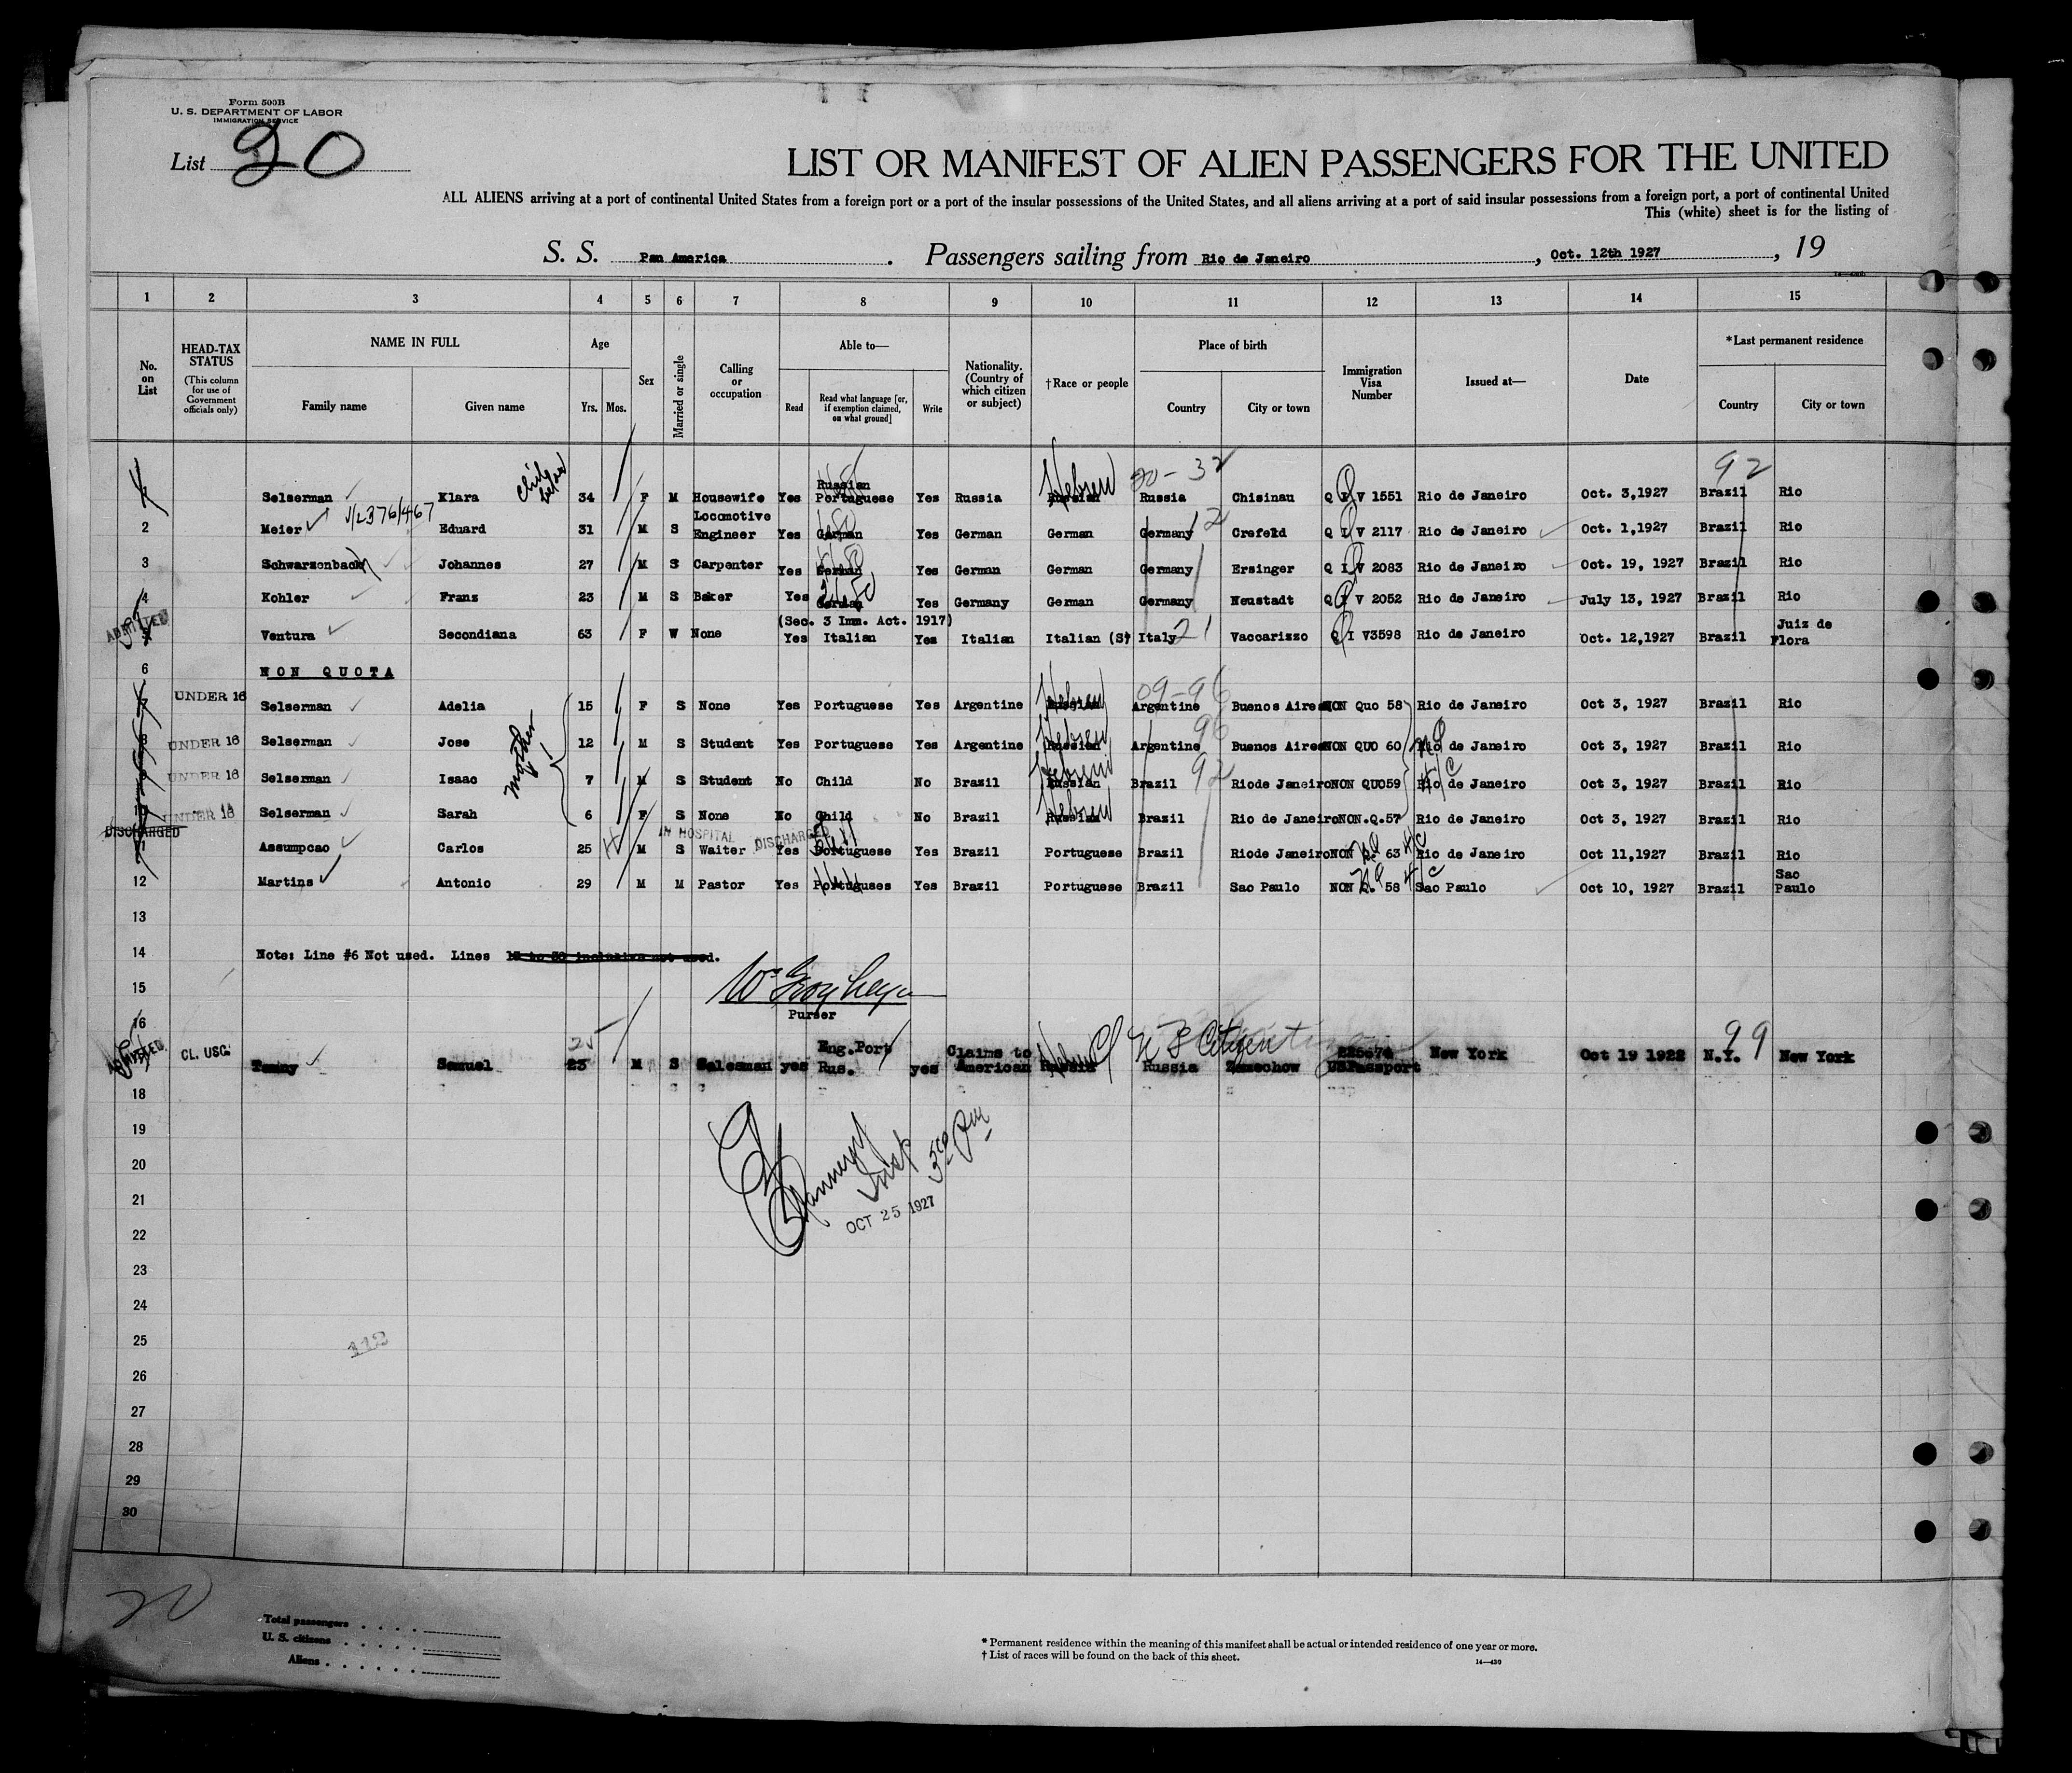 Form 500B
U. S. DEPARTMENT OF LABOR
IMMIGRATION SERVICE
List 20
LIST OR MANIFEST OF ALIEN PASSENGERS FOR THE UNITED
ALL ALIENS arriving at a port of continental United States from a foreign port or a port of the insular possessions of the United States, and all aliens arriving at a port of said insular possessions from a foreign port, a port of continental United
This (white) sheet is for the listing of
S. S. Pan America . Passengers sailing from Rio de Janeiro , Oct. 12th 1927 , 19
1 2 3 4 5 6 7 8 9 10 11 12 13 14 15
No. on List
HEAD-TAX STATUS (This column for use of Government officials only)
NAME IN FULL
Family name Given name
Age
Yrs. Mos.
Sex
Married or single
Calling or occupation
Able to—
Read Read what language [or, if exemption claimed, on what ground] Write
Nationality. (Country of which citizen or subject)
†Race or people
Place of birth
Country City or town
Immigration Visa Number
Issued at—
Date
*Last permanent residence
Country City or town
Hebrew 20-32 92
Russian
Selserman Klara 34 F M Housewife Yes Portuguese Yes Russia Russian Russia Chisinau Q I V 1551 Rio de Janeiro Oct. 3,1927 Brazil Rio
2 Meier Eduard 31 M S Locomotive Engineer Yes German Yes German German Germany 12 Crefeld Q I V 2117 Rio de Janeiro Oct. 1,1927 Brazil Rio
3 Schwarzenbach Johannes 27 M S Carpenter Yes German Yes German German Germany Ersinger Q I V 2083 Rio de Janeiro Oct. 19, 1927 Brazil Rio
4 Kohler Franz 23 M S Baker Yes German Yes Germany German Germany Neustadt Q I V 2052 Rio de Janeiro July 13, 1927 Brazil Rio
ADMITTED
(Sec. 3 Imm. Act. 1917)
Ventura Secondiana 63 F W None Yes Italian Yes Italian Italian (S) Italy 21 Vaccarizzo Q I V3598 Rio de Janeiro Oct. 12,1927 Brazil Juiz de Flora
6 NON QUOTA
UNDER 16 Selserman Adelia 15 F S None Yes Portuguese Yes Argentine Hebrew Russian 09-96 Argentine Buenos Aires NON Quo 58 Rio de Janeiro Oct 3, 1927 Brazil Rio
8 UNDER 16 Selserman Jose mother 12 M S Student Yes Portuguese Yes Argentine Hebrew Russian Argentine 96 Buenos Aires NON QUO 60 Rio de Janeiro Oct 3, 1927 Brazil Rio
UNDER 16 Selserman Isaac 7 M S Student No Child No Brazil Hebrew Russian Brazil 92 Riode Janeiro NON QUO59 Rio de Janeiro Oct 3, 1927 Brazil Rio
UNDER 16 Selserman Sarah 6 F S None No Child No Brazil Hebrew Russian Brazil Rio de Janeiro NON.Q.57 Rio de Janeiro Oct 3, 1927 Brazil Rio
DISCHARGED IN HOSPITAL DISCHARGED
Assumpcao Carlos 25 M S Waiter Yes Portuguese Yes Brazil Portuguese Brazil Riode Janeiro NON Q. 63 Rio de Janeiro Oct 11,1927 Brazil Rio
12 Martins Antonio 29 M M Pastor Yes Portuguses Yes Brazil Portuguese Brazil Sao Paulo NON Q. 58 Sao Paulo Oct 10, 1927 Brazil Sao Paulo
13
14 Note: Line #6 Not used. Lines 13 to 30 inclusive not used.
15
Purser
16
25 Hebrew U S Citizen 99
CL. USC. Samuel 23 M S Salesman yes Eng.Port Rus. yes Claims to American Russia Russia USPassport New York Oct 19 1922 N.Y. New York
18
19
20
21
OCT 25 1927
22
23
24
25
112
26
27
28
29
30
20
Total passengers
U. S. citizens
Aliens
* Permanent residence within the meaning of this manifest shall be actual or intended residence of one year or more.
† List of races will be found on the back of this sheet.
14—430